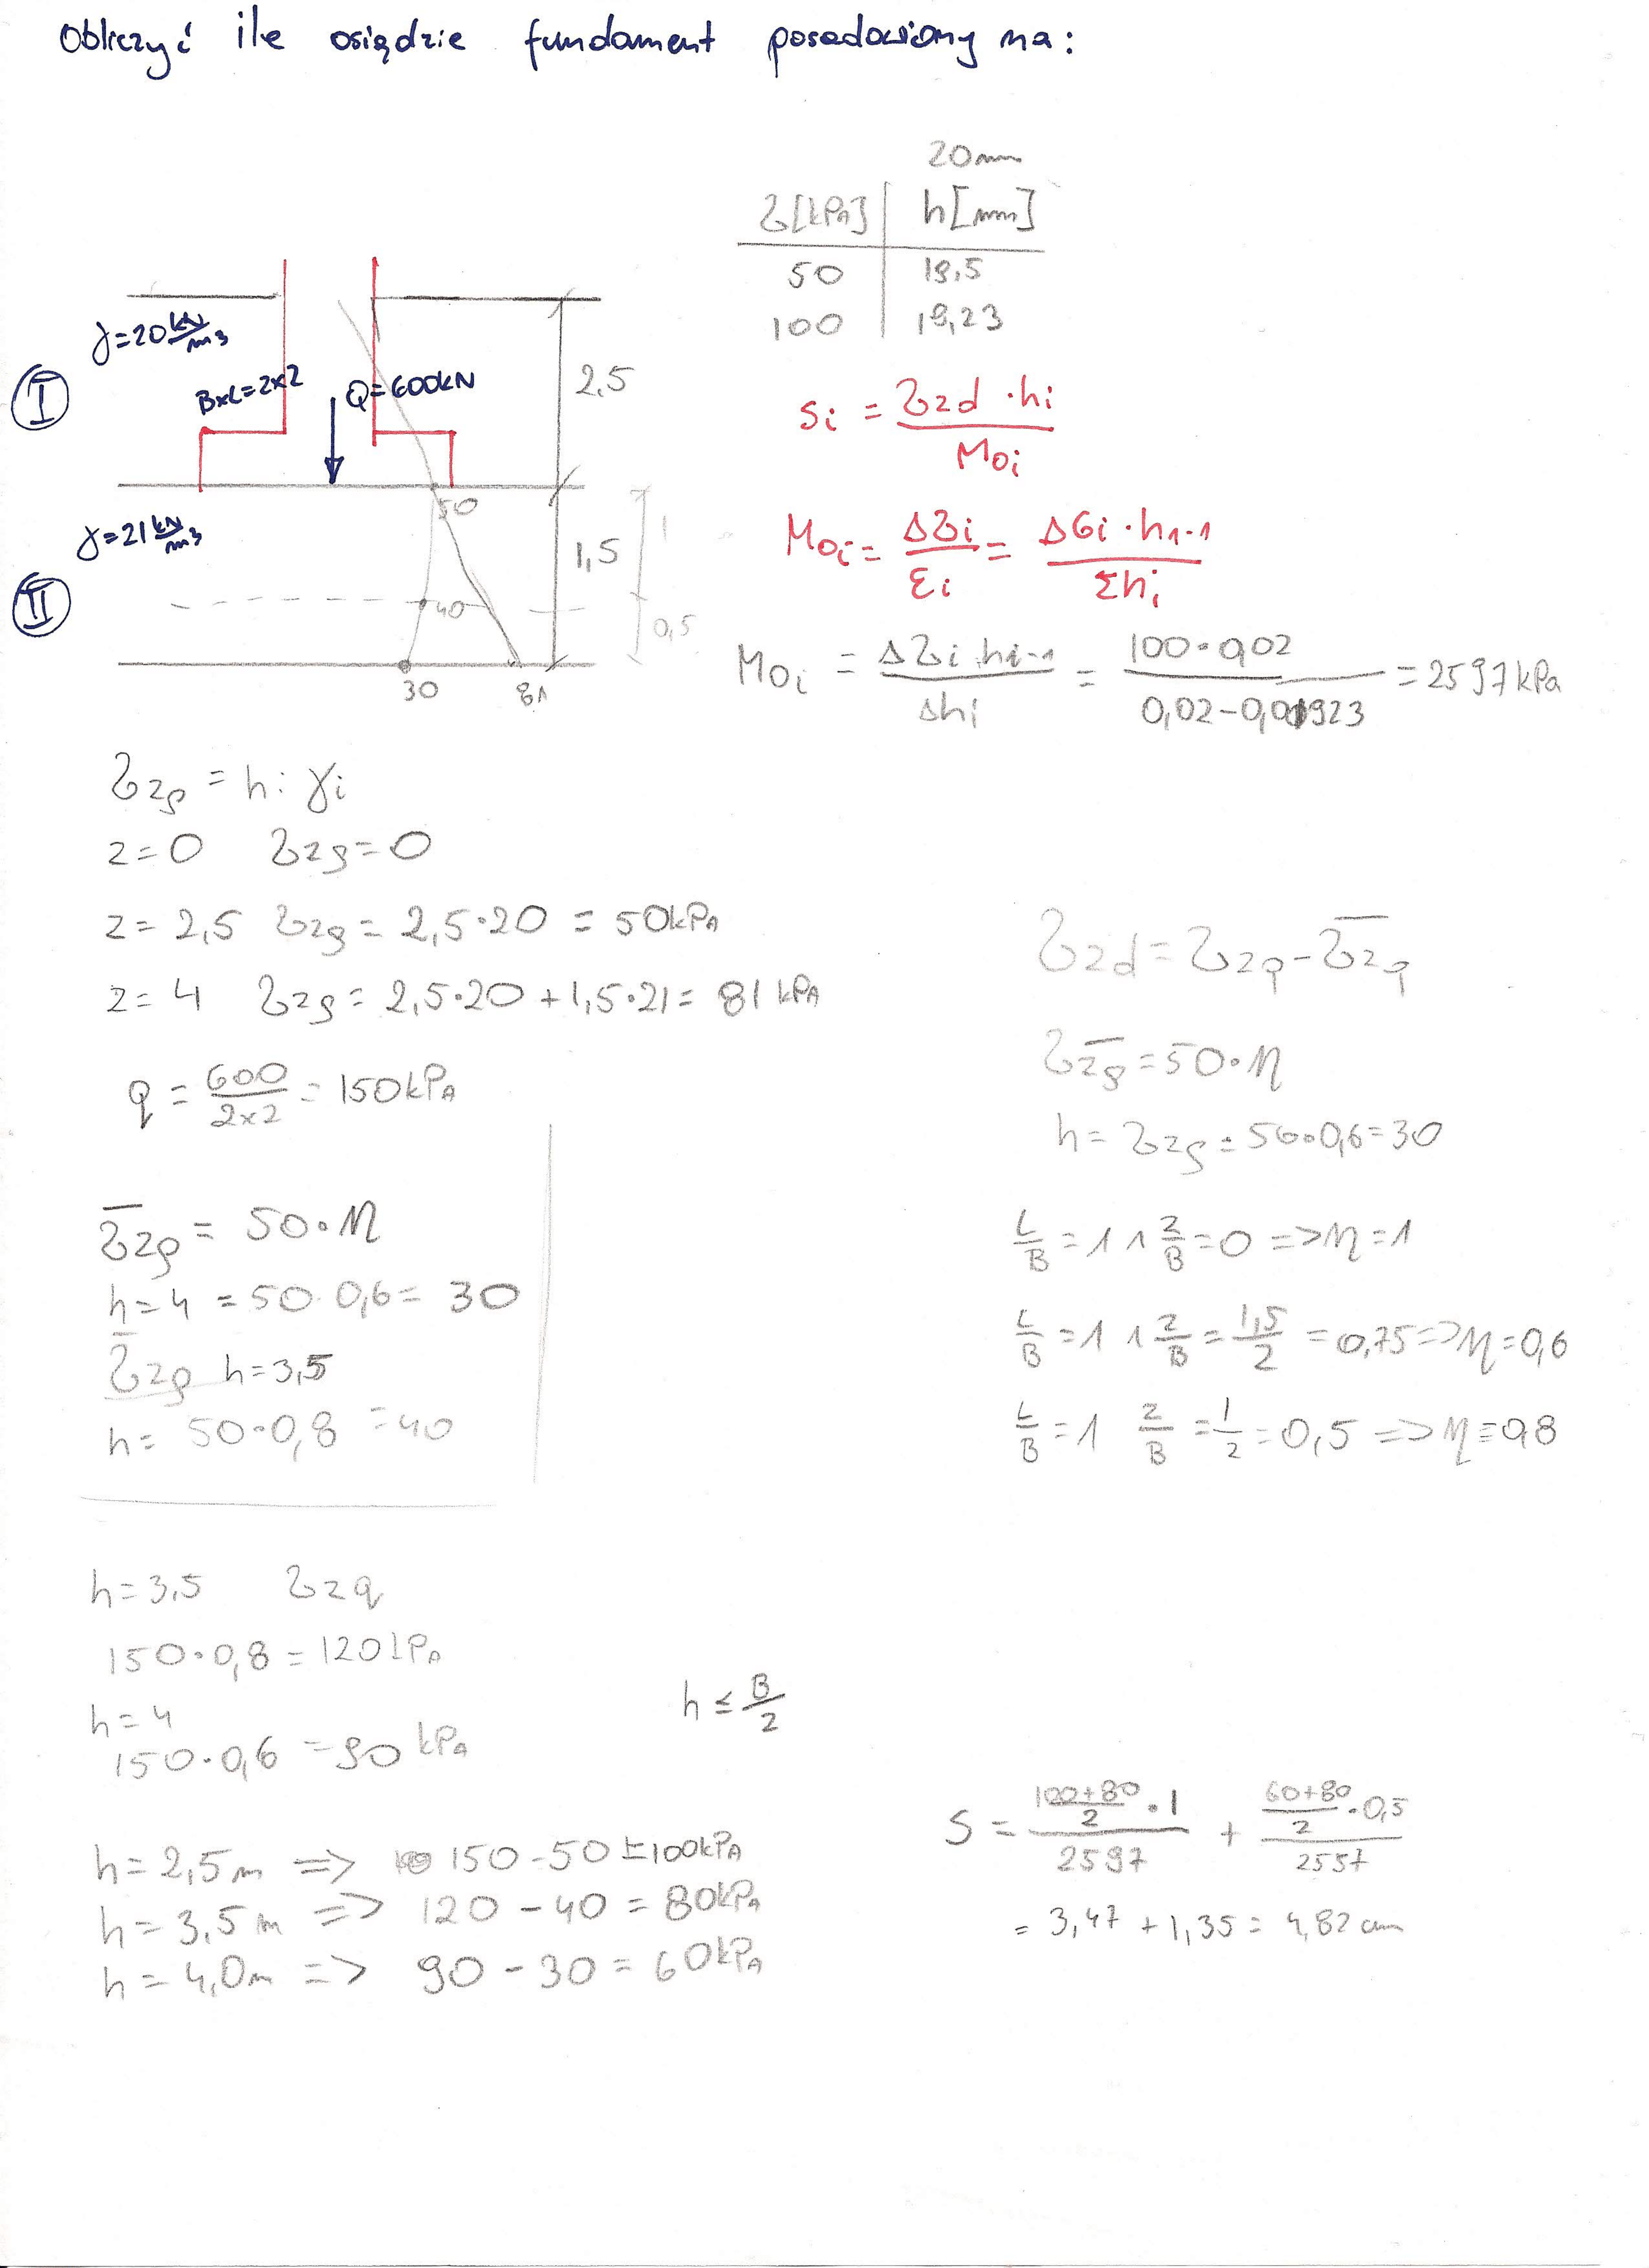 Obliczyć ile osiądzie fundament posadowiony na:
20mm
σ[kPa] | h[mm]
50 | 19,5
100 | 19,23
I
γ=20 kN/m3
BxL=2x2
Q=600kN
2,5
si = σzd · hi / Moi
II
γ=21 kN/m3
50
1
1,5
40
0,5
30
81
Moi = Δσi / εi = ΔGi · h1-1 / Σhi
Moi = Δσi hi-1 / Δhi = 100·0,02 / 0,02-0,01923 = 2597kPa
σzρ = hi γi
z=0 σzρ=0
z=2,5 σzρ= 2,5·20 = 50kPa
z=4 σzρ= 2,5·20+1,5·21= 81kPa
q = 600 / 2x2 = 150kPa
σ̅zρ = 50·η
h=4 = 50·0,6= 30
σ̅zρ h=3,5
h= 50·0,8 =40
σzd = σzq - σ̅zρ
σ̅zρ=50·η
h= σzρ= 50·0,6=30
L/B=1 ∧ z/B=0 => η=1
L/B=1 ∧ z/B = 1,5/2 = 0,75 => η=0,6
L/B=1 z/B = 1/2 = 0,5 => η=0,8
h=3,5 σzq
150·0,8=120kPa
h=4
150·0,6=90kPa
h ≤ B/2
h=2,5m => 150-50=100kPa
h=3,5m => 120-40=80kPa
h=4,0m => 90-30=60kPa
S = (100+80)/2 ·1 / 2597 + (60+80)/2 ·0,5 / 2557
= 3,47+1,35= 4,82cm